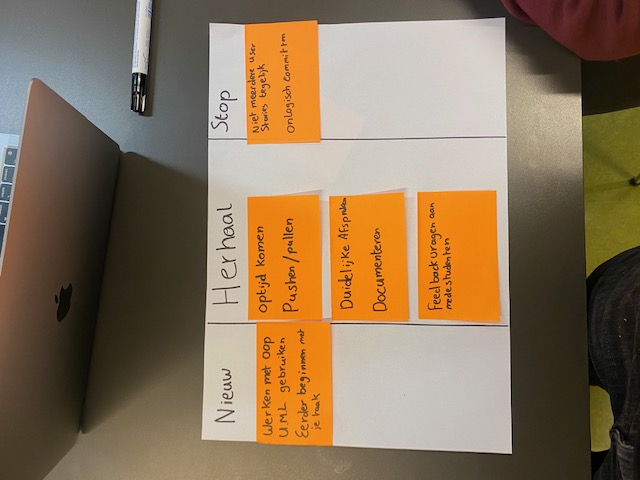 Nieuw
Werken met OOP
UML gebruiken
Eerder beginnen met
je taak
Herhaal
optijd komen
Pushen/pullen
Duidelijke Afspraken
Documenteren
Feedback vragen aan
medestudenten
Stop
Niet meerdere user
Stories tegelijk
Onlogisch committen